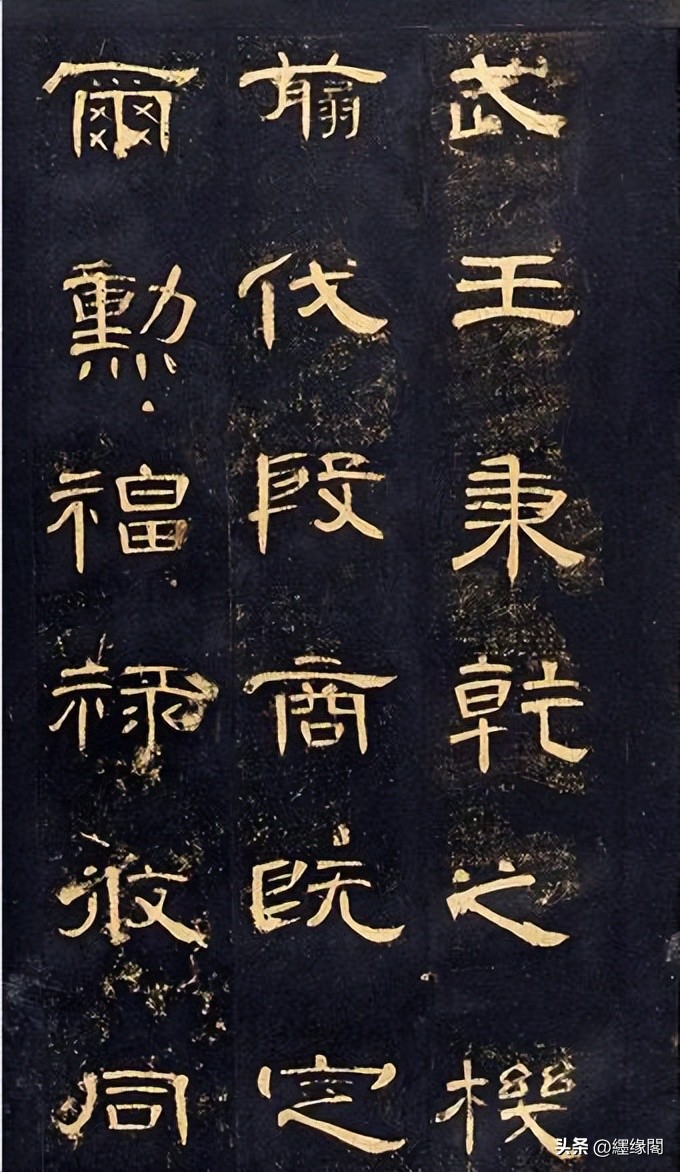 武王秉乾之機
翦伐殷商既定
爾勳福祿攸同
头条 @纆缘閣